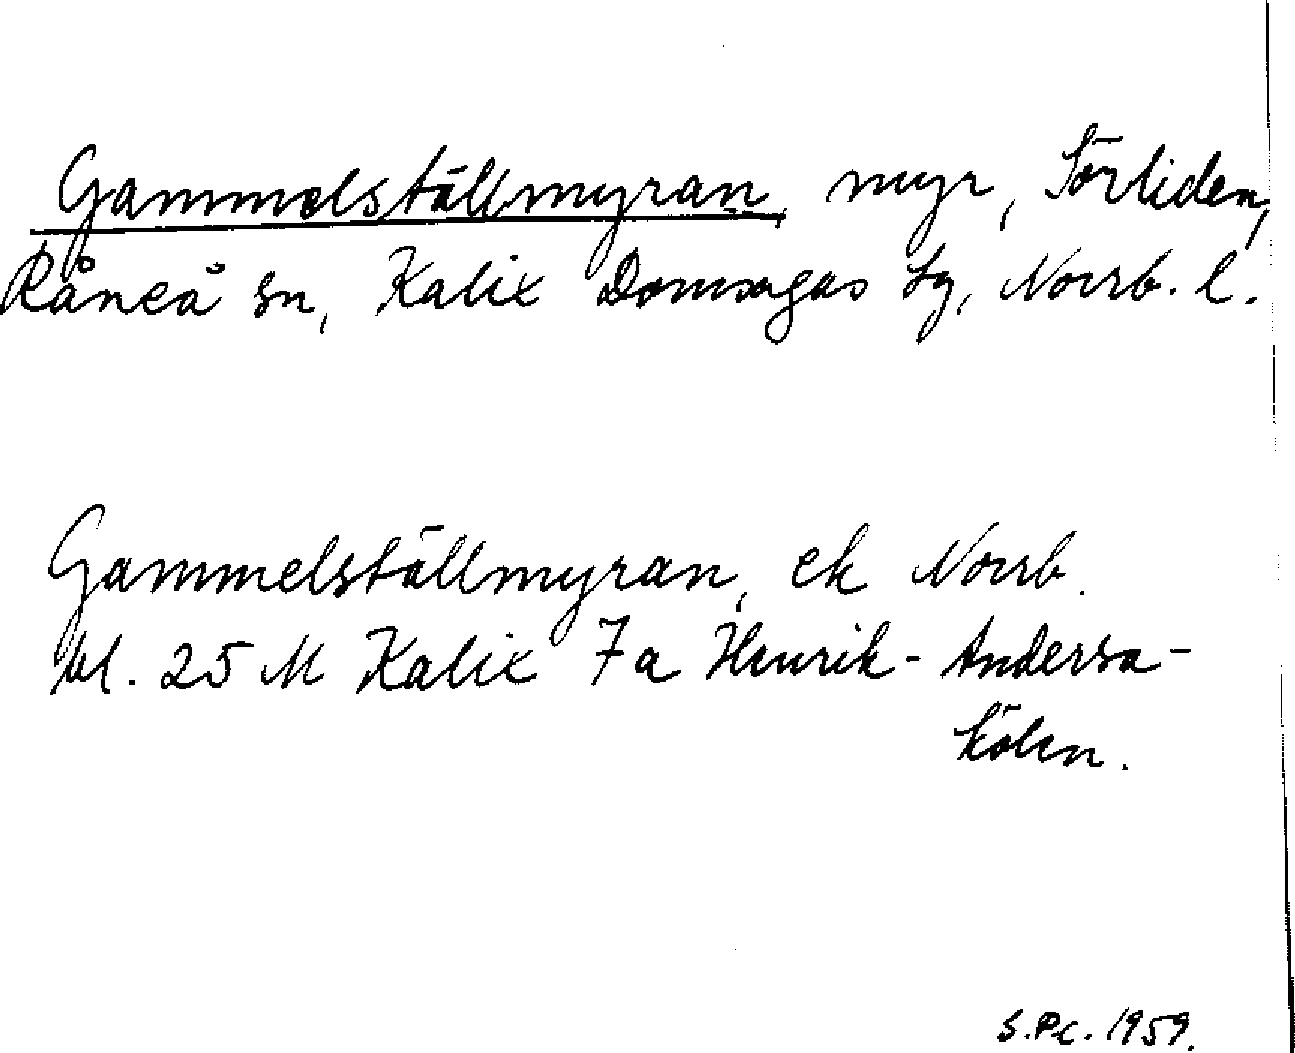 Gammelställmyran, myr, Sörliden,
Råneå sn, Kalix Domsagas tg, Norrb. l.
Gammelställmyran, ek Norrb.
bl. 25 M Kalix 7a Henrik-Andersa-
kölen.
S.P.C. 1959.